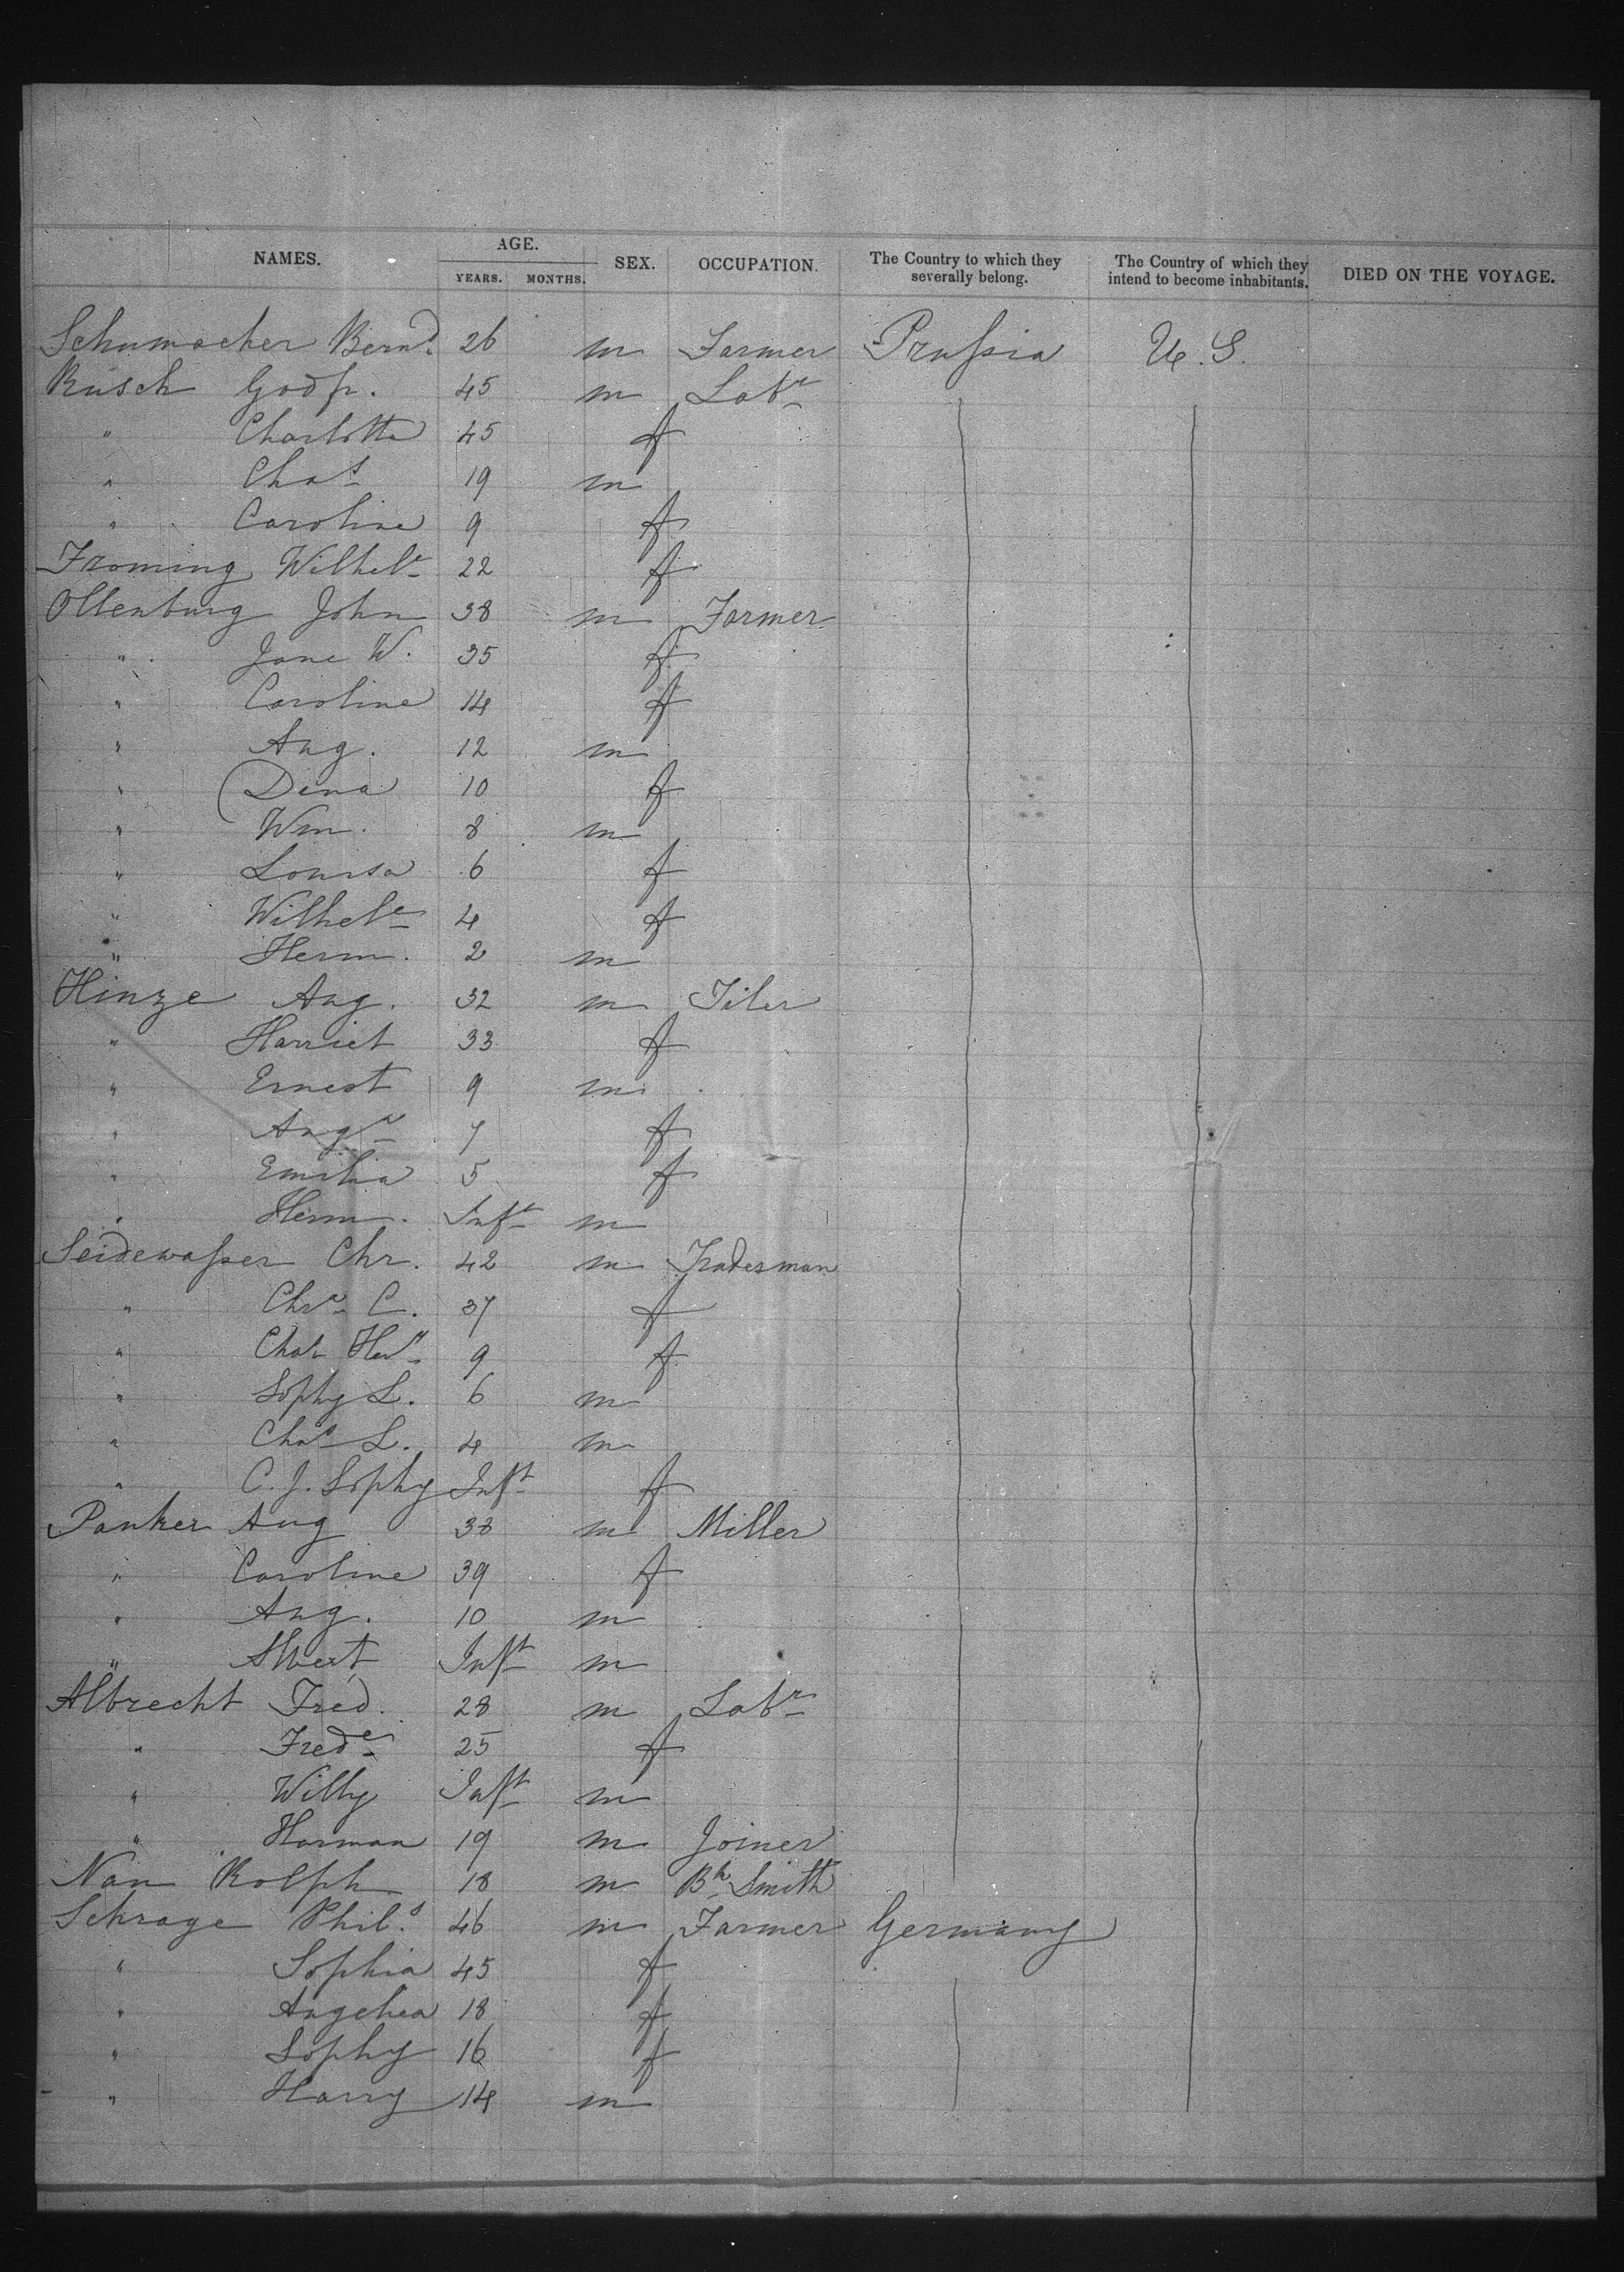 NAMES. AGE. YEARS. MONTHS. SEX. OCCUPATION. The Country to which they severally belong. The Country of which they intend to become inhabitants. DIED ON THE VOYAGE.
Schumacher Bernd. 26 m Farmer Prussia U. S.
Rusch Godfr. 45 m Labr
" Charlotte 45 f
" Chas 19 m
" Caroline 9 f
Froming Wilhele 22 f
Ollenburg John 38 m Farmer
" Jane W. 35 f
" Caroline 14 f
" Aug. 12 m
" Dina 10 f
" Wm. 8 m
" Louisa 6 f
" Wilhele 4 f
" Herm. 2 m
Hinze Aug. 32 m Tiler
" Harriet 33 f
" Ernest 9 m
" Auga 7 f
" Emilia 5 f
" Herm. Inft m
Seidewasser Chr. 42 m Tradesman
" Chra C. 37 f
" Chat 9 f
" Sophy L. 6 m
" Chas L. 4 m
" C. J. Sophy Inft f
Panker Aug 38 m Miller
" Caroline 39 f
" Aug. 10 m
" Albert Inft m
Albrecht Fred. 28 m Labr
" Frede 25 f
" Willy Inft m
" Harman 19 m Joiner
Nan Rolph 18 m Bk Smith
Schrage Phil.s 46 m Farmer Germany
" Sophia 45 f
" Angelica 18 f
" Sophy 16 f
" Harry 14 m